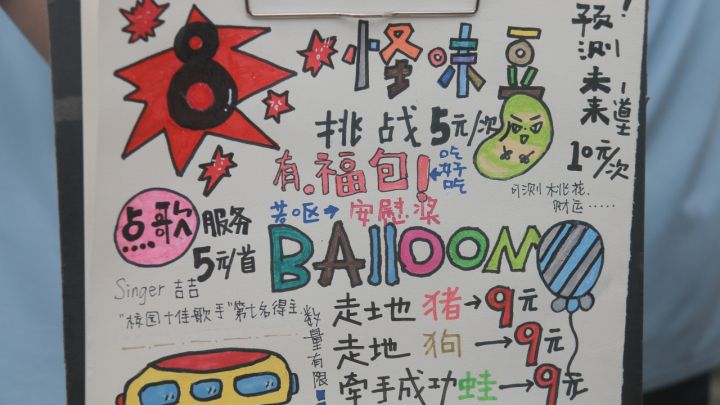 8
怪味豆
挑战5元/次
有.福包!
吃好吃
苦呕→安慰浆
预测未来!
道士
10元/次
可测桃花.
财运……
点歌服务
5元/首
Singer 喆
"校园十佳歌手"第七名得主
BAllOON
数量有限
走土地猪→9元
走地狗→9元
牵手成功蛙→9元